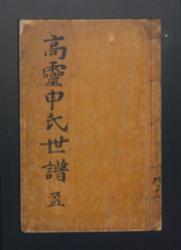 高靈申氏世譜 盈